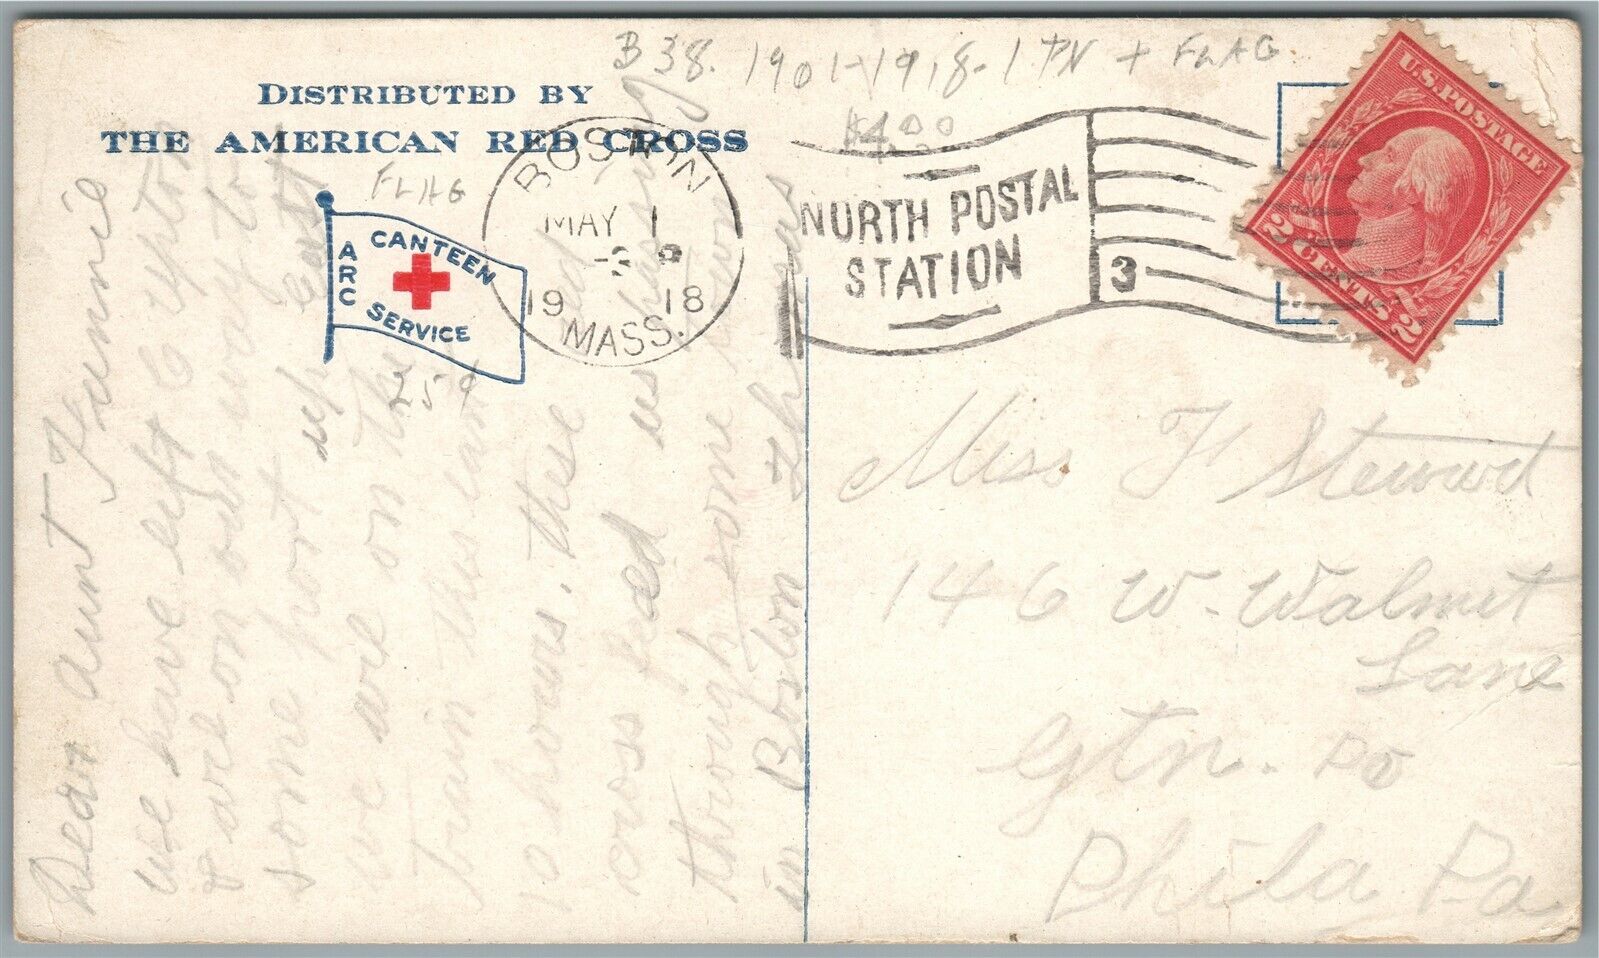 B38. 1901-1918-1 PN + FLAG
$4.00
DISTRIBUTED BY
THE AMERICAN RED CROSS
FLAG
ARC
CANTEEN
SERVICE
25¢
BOSTON
MAY 1
-3 P
19 18
MASS.
NORTH POSTAL
STATION
3
U.S.POSTAGE
2 CENTS 2
Dear Aunt Fannie
We have left Upton
& are on our way to
some port up east
we are on the
train this
10 hours. the Red
cross fed us
through some town
in Boston
Miss F Steward
146 W. Walnut
Lane
Gtn. Po
Phila Pa